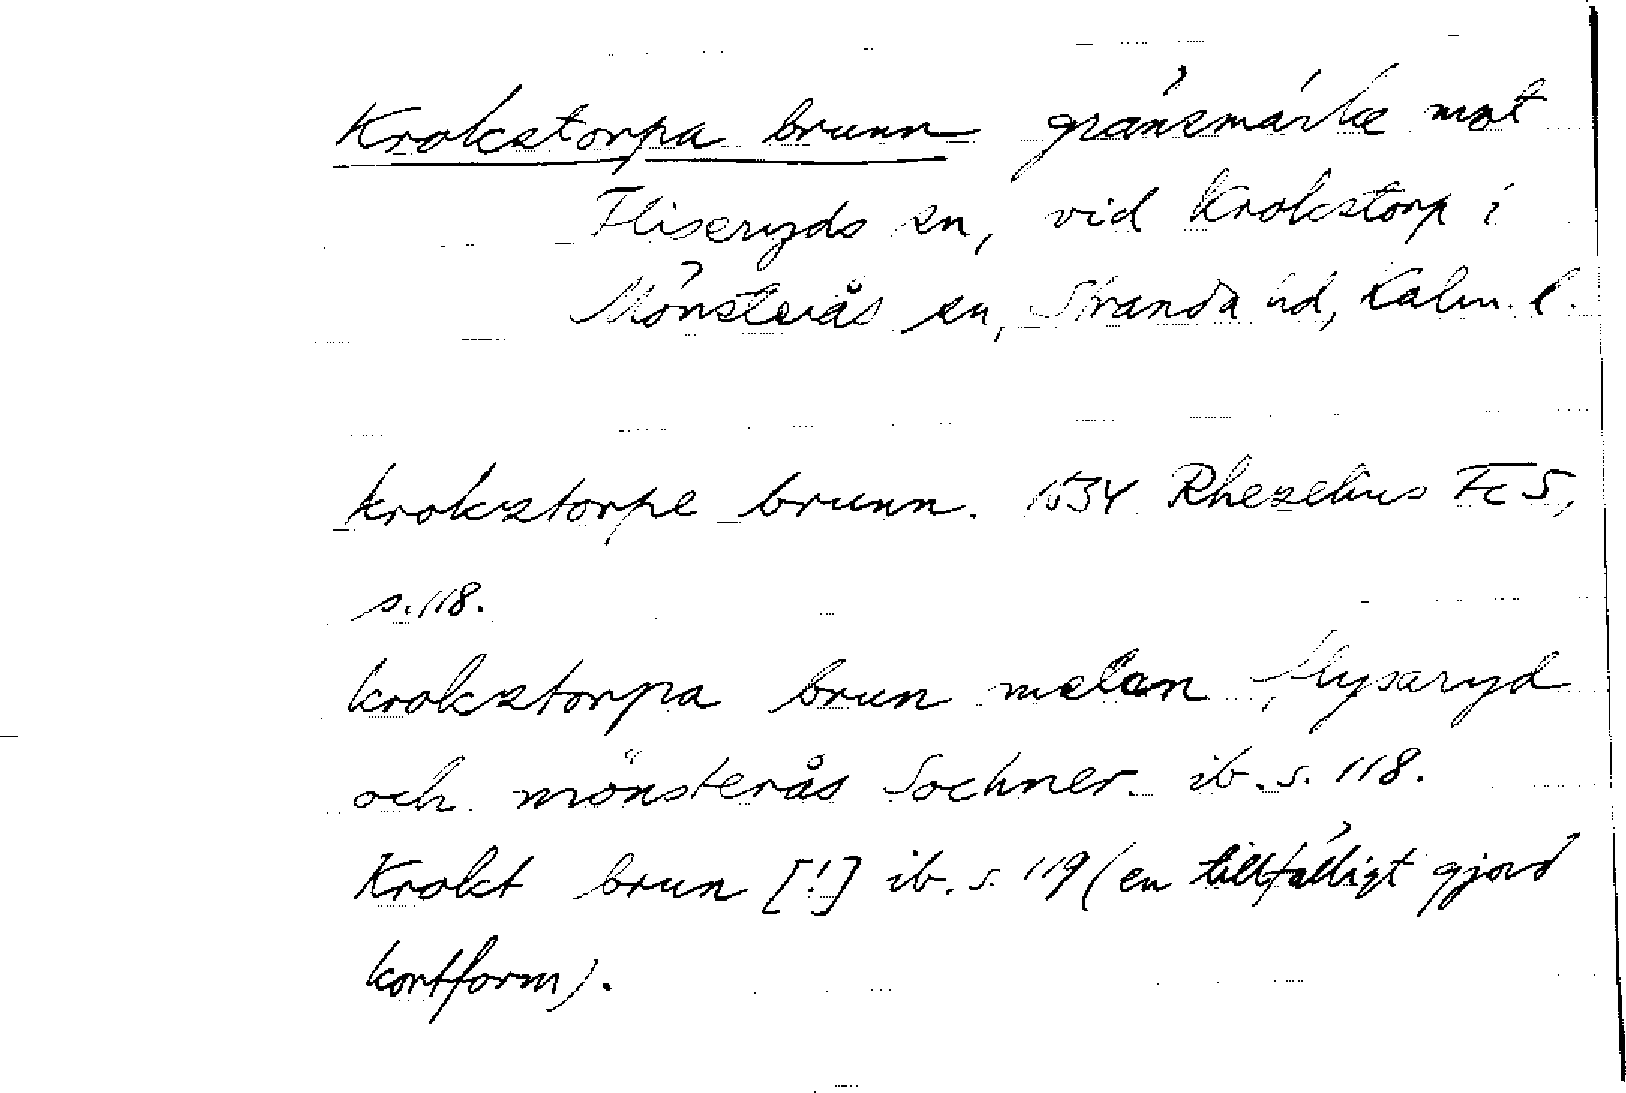 Krokstorpa brunn gränsmärke mot
Fliseryds sn, vid Krokstorp i
Mönsterås sn, Stranda hd, Kalm. l.
krokstorpe brunn. 1634 Rhezelius Fc 5,
s. 118.
krokstorpa brun melan flysaryd
och mönsterås Sochner. ib. s. 118.
Krokt brun [!] ib. s. 119 (en tillfälligt gjord
kortform).